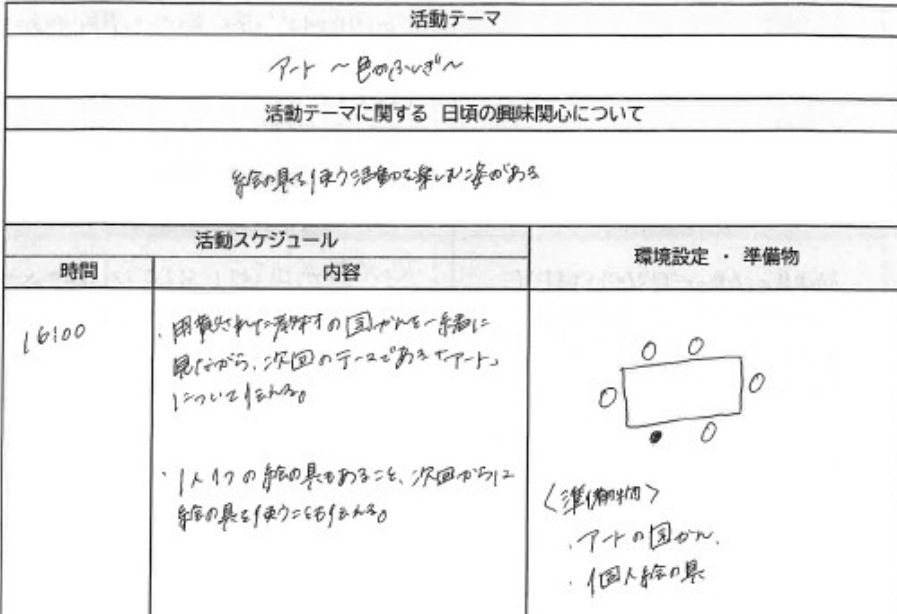 活動テーマ
アート ～色のふしぎ～
活動テーマに関する 日頃の興味関心について
絵の具を使う活動を楽しむ姿がある
活動スケジュール
環境設定 ・ 準備物
時間
内容
16:00
・用意された素材の図かんを一緒に
見ながら、次回のテーマである「アート」
について伝える。
・1人1つの絵の具もあること、次回からは
絵の具を使うことも伝える。
〈準備物〉
・アートの図かん
・個人絵の具